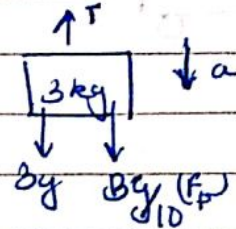 T
a
3 kg
3g
3g/10 (Fp)